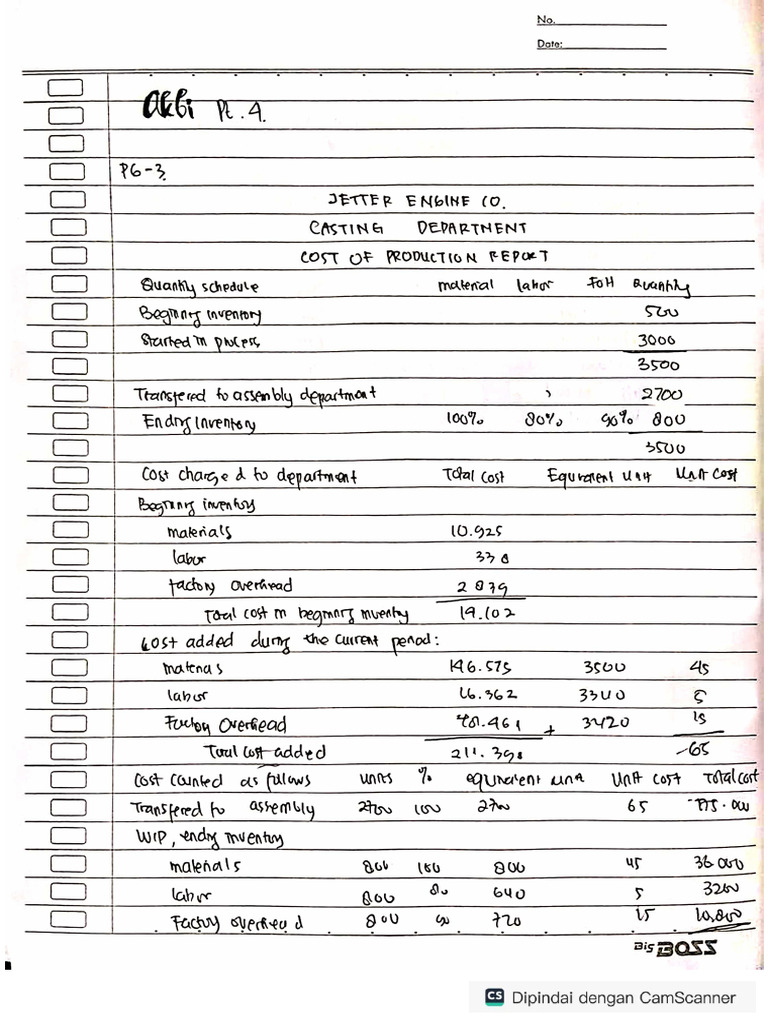 No.
Date:
Akbi Pt. 4.
P6-3.
JETTER ENGINE CO.
CASTING DEPARTMENT
COST OF PRODUCTION REPORT
Quantity schedule material labor FOH Quantity
Beginning inventory 500
Started in process 3000
3500
Transfered to assembly department 2700
Ending Inventory 100% 80% 90% 800
3500
Cost charged to department Total Cost Equivalent Unit Unit Cost
Beginning inventory
materials 10.925
labor 338
factory overhead 2839
Total cost in beginning inventory 14.102
Cost added during the current period:
materials 146.575 3500 45
labor 16.362 3340 5
Factory Overhead 48.461 + 3420 15
Total cost added 211.398 65
Cost counted as follows units % equivalent unit Unit cost Total cost
Transfered to assembly 2700 100 2700 65
WIP, ending inventory
materials 800 100 800 45 36.000
labor 800 80 640 5 3200
Factory overhead 800 90 720 15 10.800
Bis BOSS
CS Dipindai dengan CamScanner